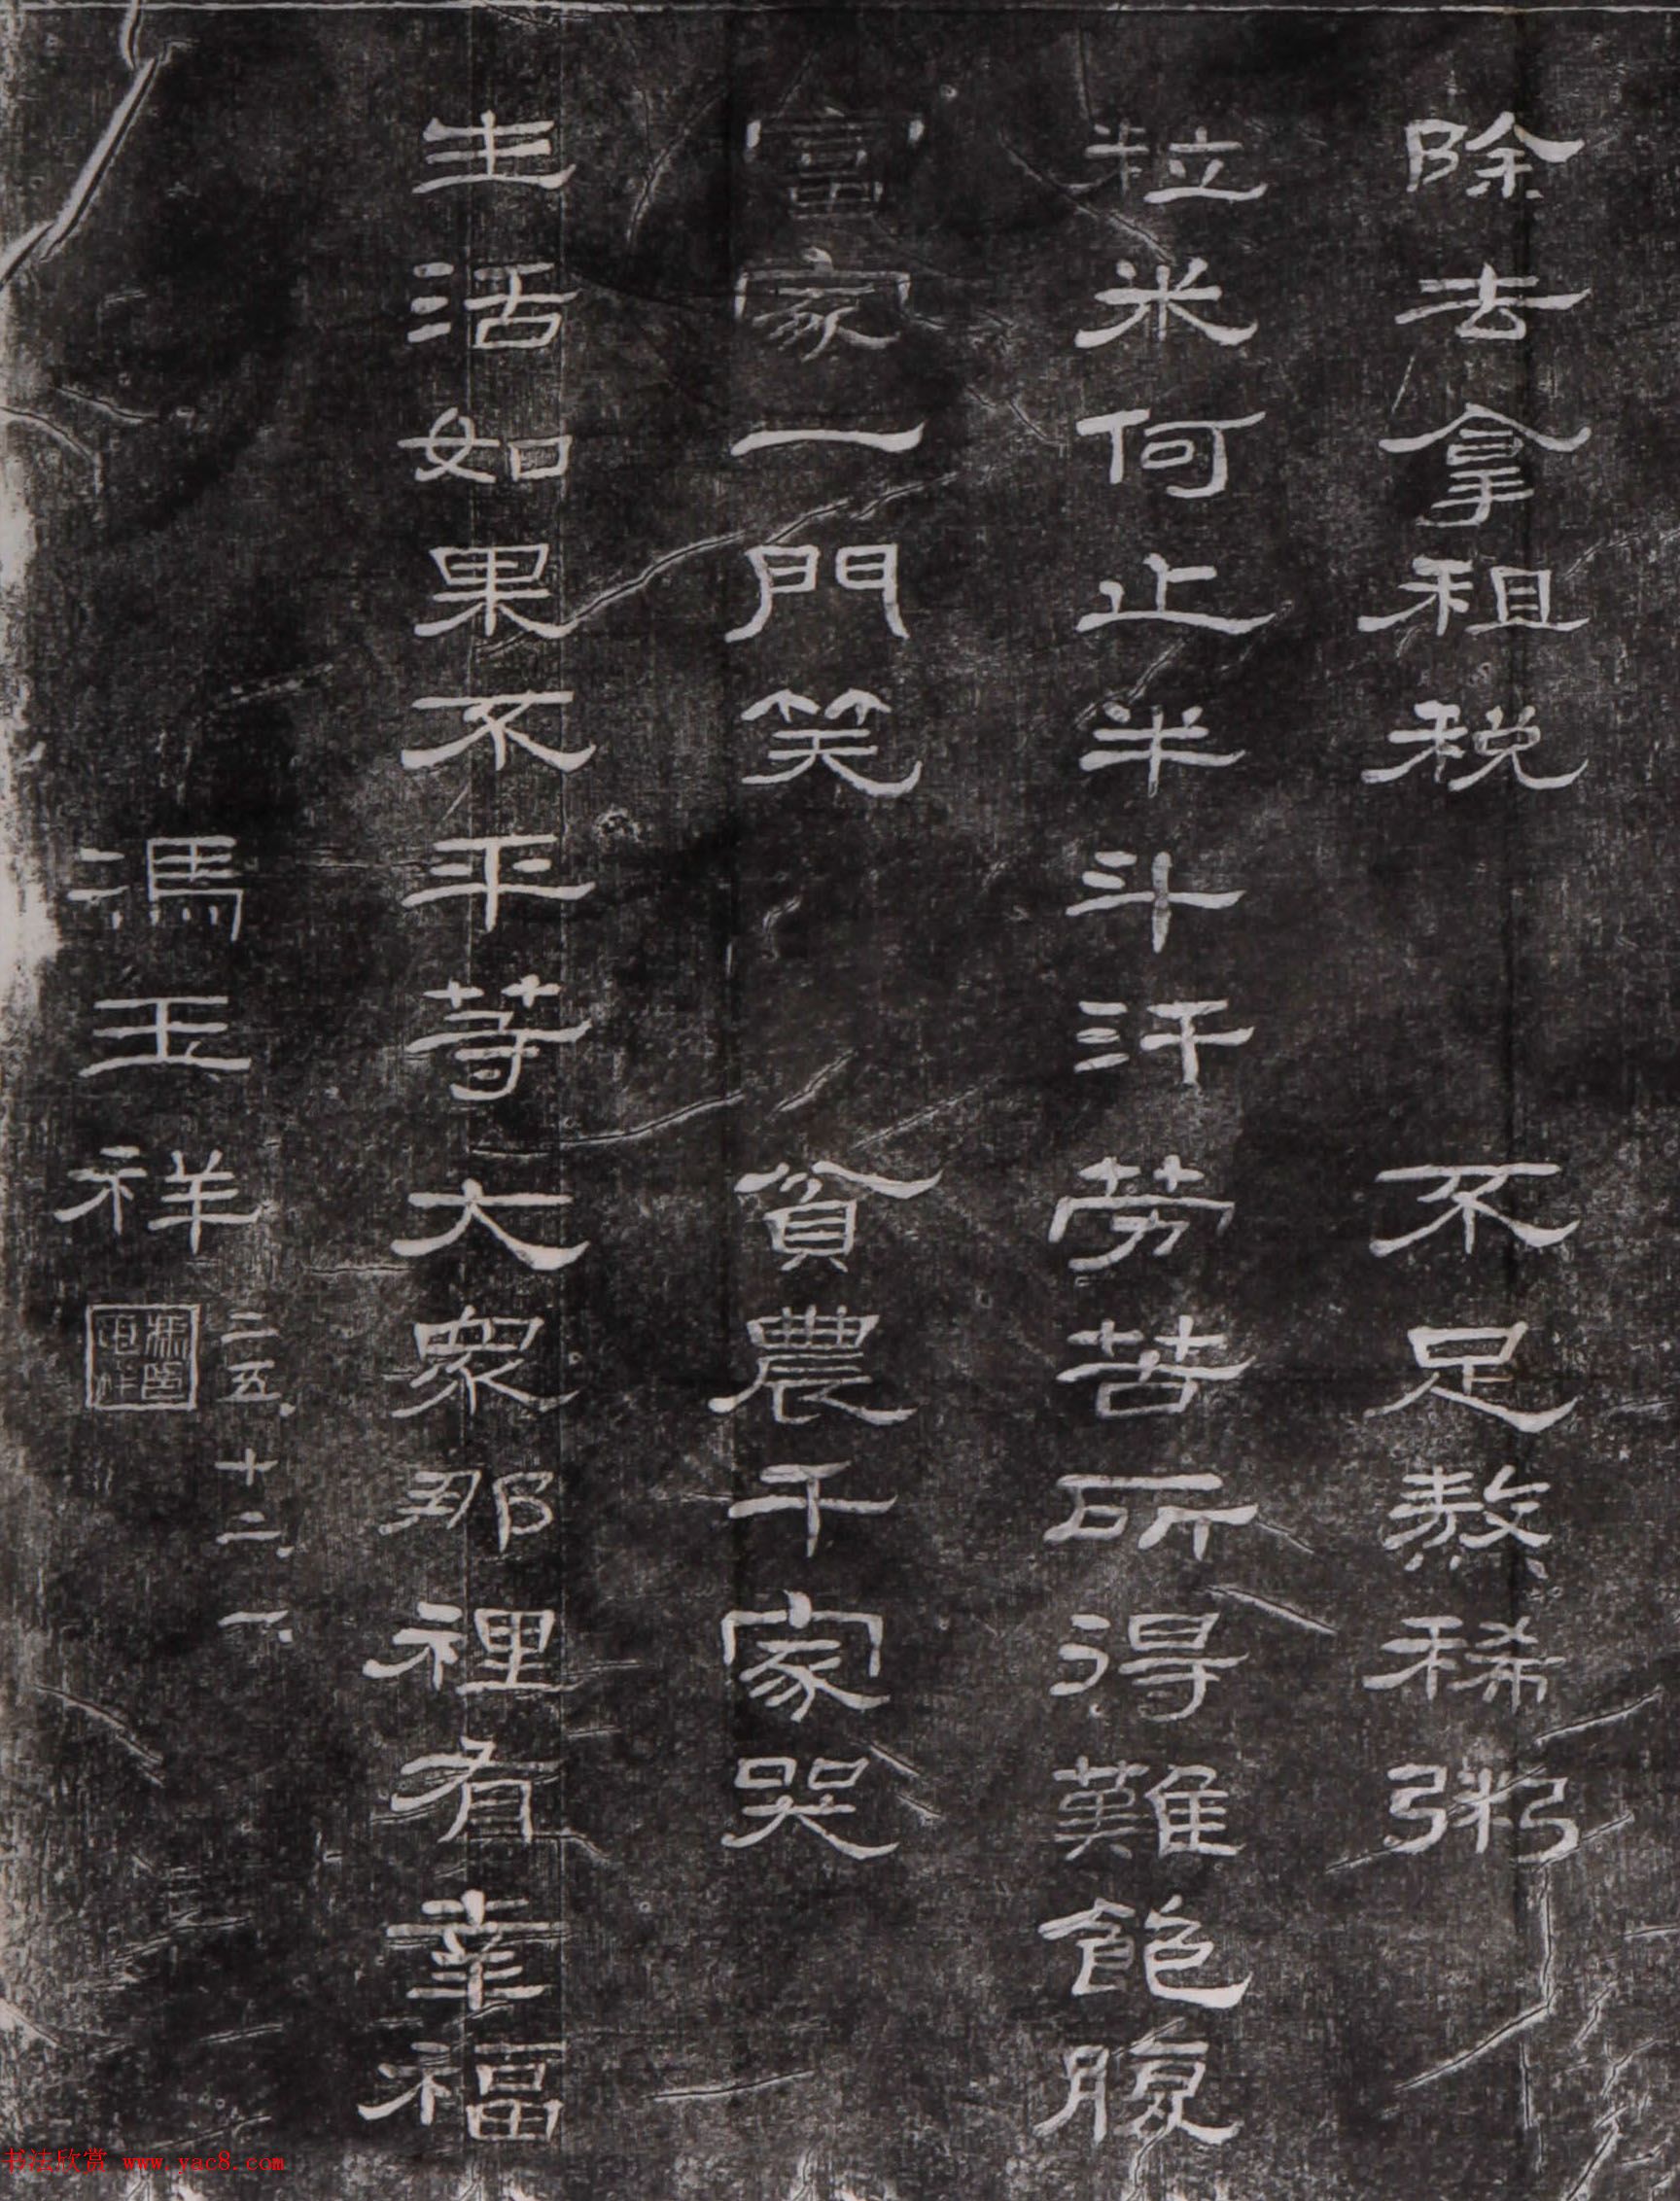 除去拿租税 不足熬稀粥
粒米何止半斗汗劳苦所得難飽腹
富家一門笑 貧農千家哭
生活如果不平等大眾那裡有幸福
馮玉祥
二五、十二、一、
书法欣赏 www.yac8.com